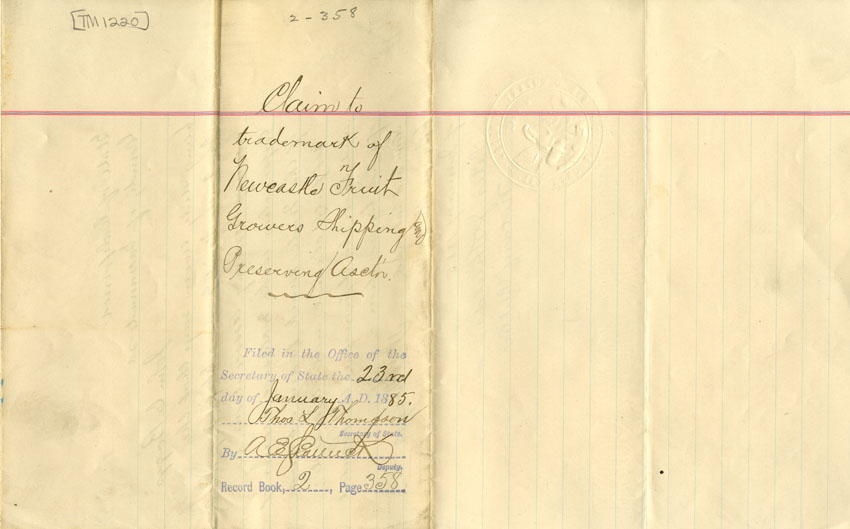 [TM1220]
2-358
Claim to
trademark of
Newcastle Fruit
Growers Shipping and
Preserving Asc'tn.
Filed in the Office of the
Secretary of State the 23rd
day of January A.D. 1885.
Thos L Thompson
Secretary of State.
By A E
Deputy.
Record Book, 2, Page 358